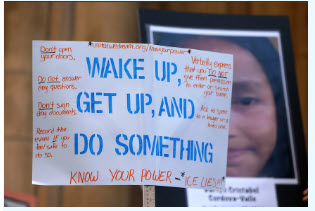 unitedwedream.org/knowyourpower
Don't open
your doors.
Do not answer
any questions.
Don't sign
any documents.
Record the
event if you
feel safe to
do so.
WAKE UP,
GET UP, AND
DO SOMETHING
Verbally express
that you DO NOT
give them permission
to enter or search
your home.
Ask to speak
to a lawyer and
KNOW YOUR POWER - ICE LIES!!
Cristabel
Cordova-Valle